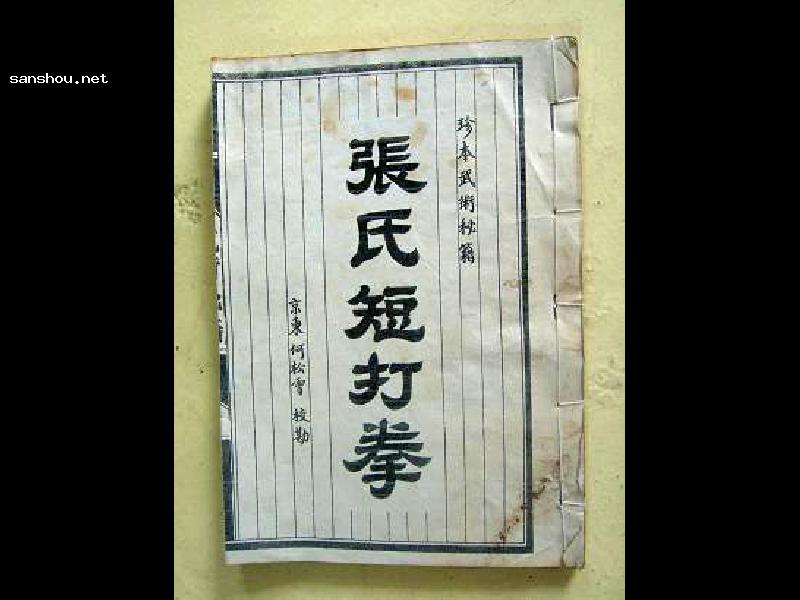 sanshou.net
珍本武術秘籍
張氏短打拳
京東何松雪 校勘